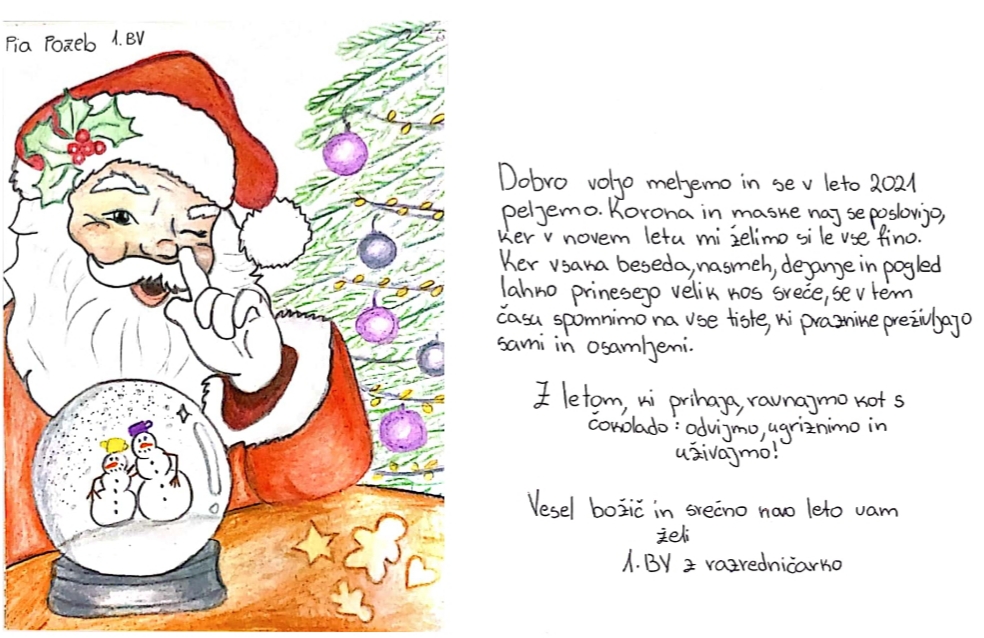 Pia Požeb 1.BV
Dobro voljo meljemo in se v leto 2021
peljemo. Korona in maske naj se poslovijo,
ker v novem letu mi želimo si le vse fino.
Ker vsaka beseda, nasmeh, dejanje in pogled
lahko prinesejo velik kos sreče, se v tem
času spomnimo na vse tiste, ki praznike preživljajo
sami in osamljeni.
Z letom, ki prihaja, ravnajmo kot s
čokolado: odvijmo, ugriznimo in
uživajmo!
Vesel božič in srečno novo leto vam
želi
1.BV z razredničarko